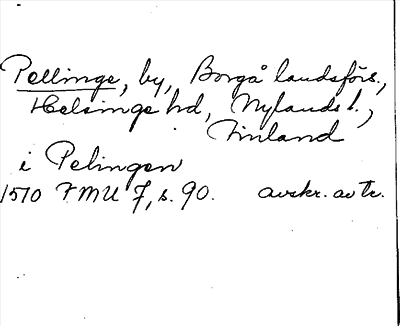 Pellinge, by, Borgå landsförs.,
Helsinge hd, Nylands l.,
Finland
i Pelingen
1510 FMU 7, s. 90. avskr. av tr.